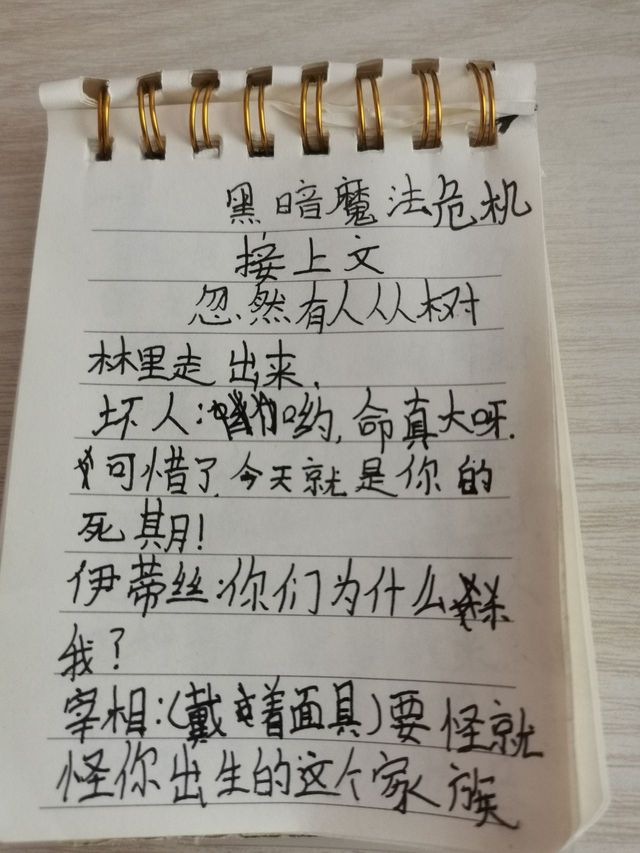 黑暗魔法危机
接上文
忽然有人从树
林里走出来.
坏人:哟,命真大呀.
可惜了,今天就是你的
死期!
伊蒂丝:你们为什么杀
我?
宰相:(戴着面具)要怪就
怪你出生的这个家族